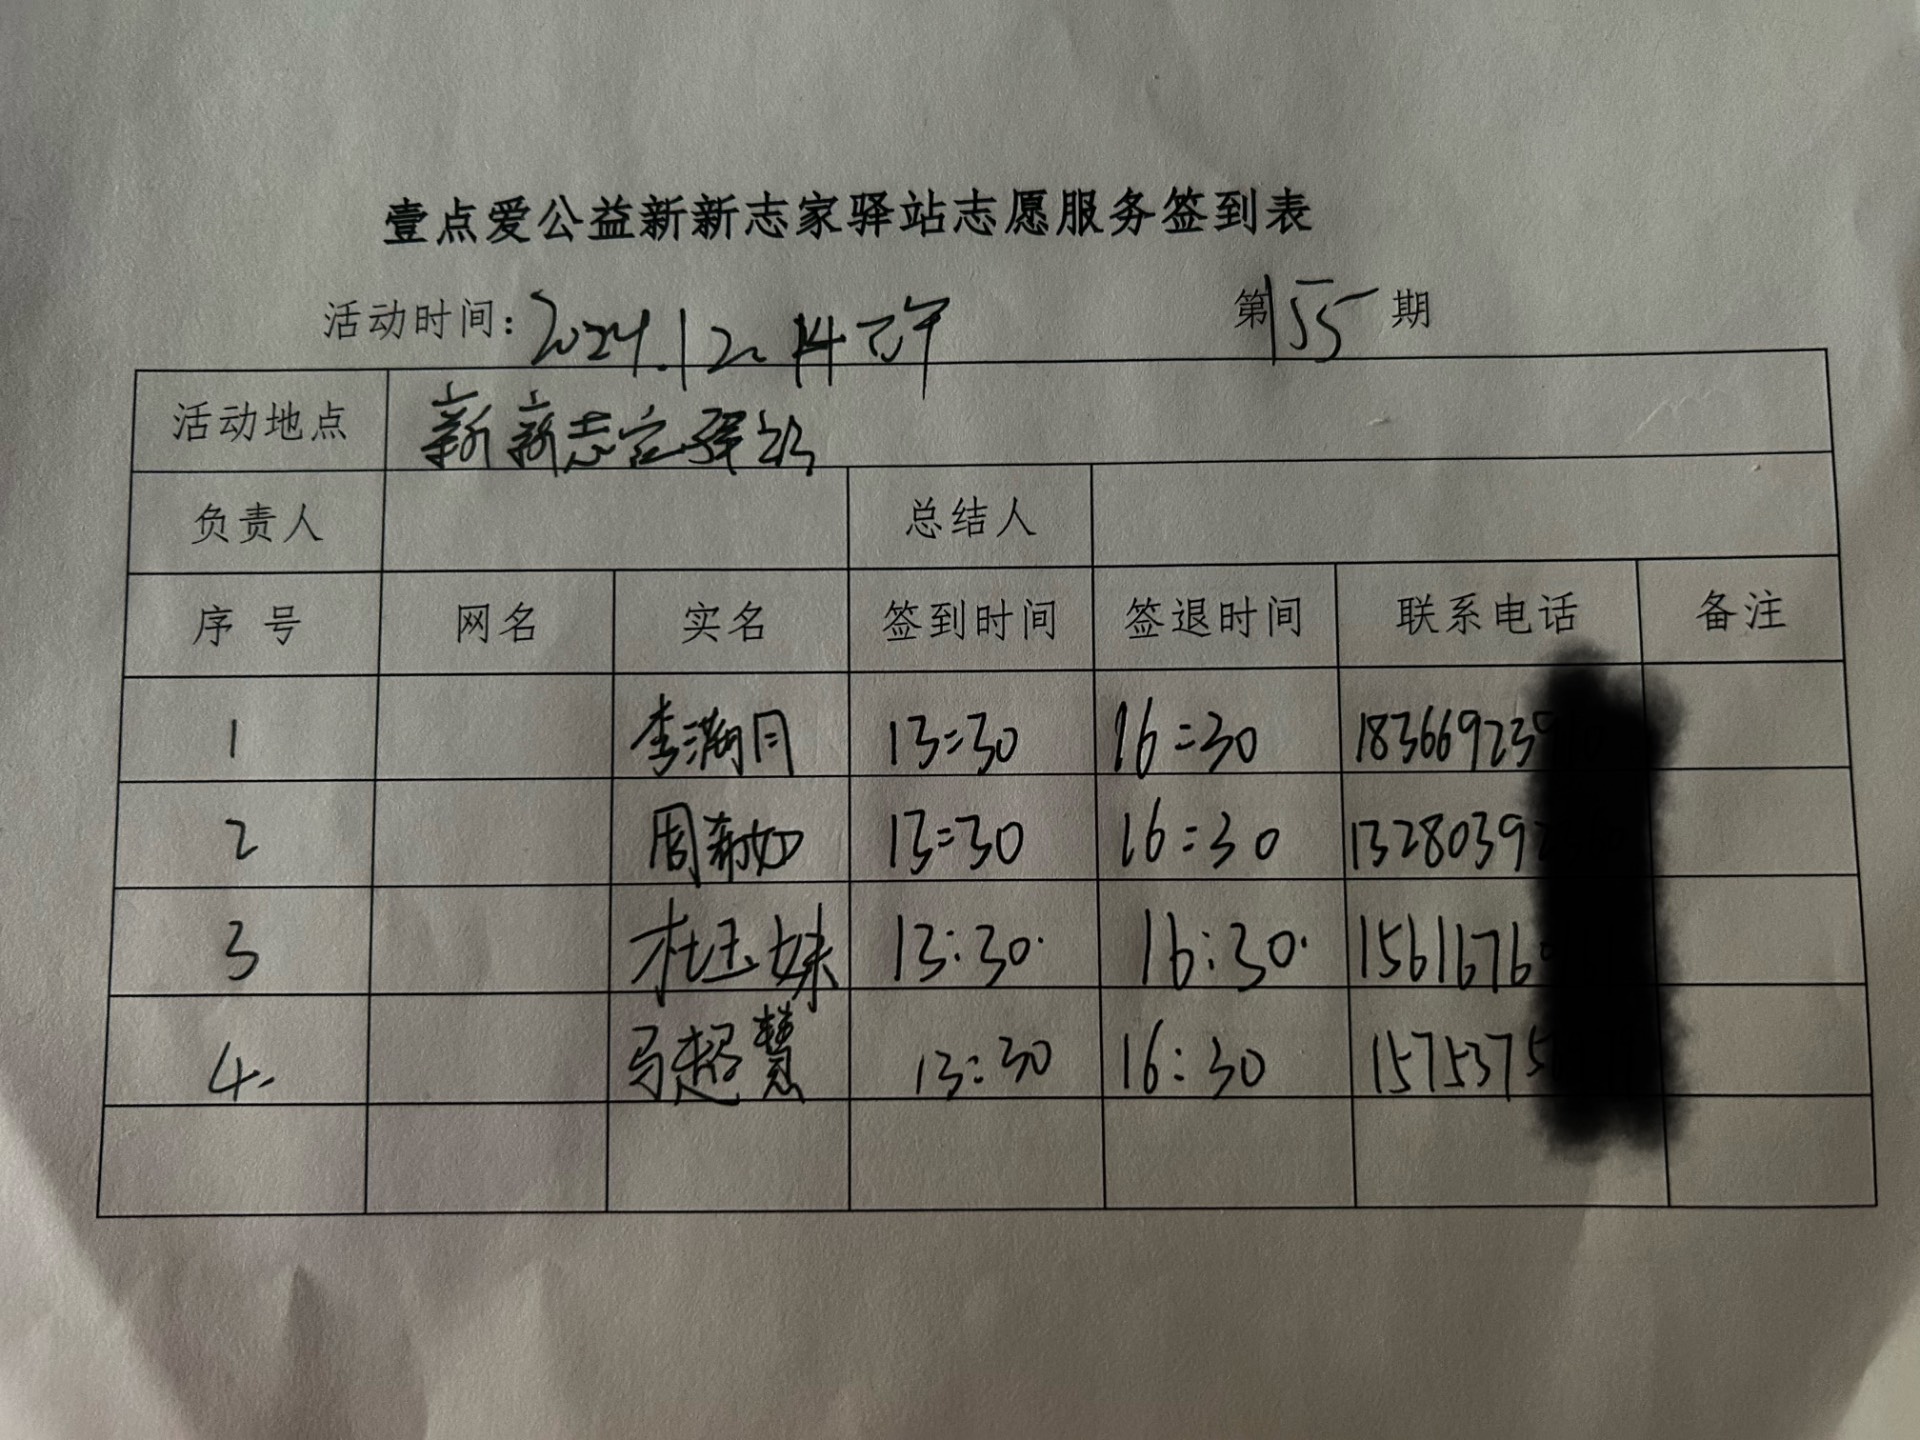 壹点爱公益新新志家驿站志愿服务签到表
活动时间：2024.12.14下午 第155期
活动地点 新新志家驿站
负责人 总结人
序号 网名 实名 签到时间 签退时间 联系电话 备注
1 李满月 13:30 16:30 18366923
2 周希如 13:30 16:30 1328039
3 杜玉妹 13:30. 16:30. 1561676
4. 马超慧 13:30 16:30 1575375